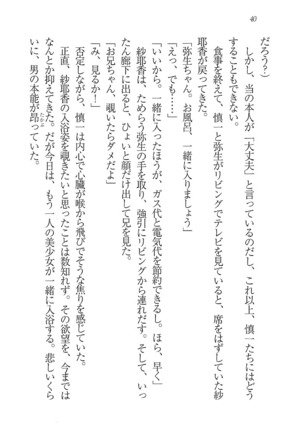 40
だろう？）
　しかし、当の本人が「大丈夫」と言っているのだし、これ以上、慎一たちにはどう
することもできない。
　食事を終えて、慎一と弥生がリビングでテレビを見ていると、席をはずしていた紗
耶香が戻ってきた。
「弥生ちゃん。お風呂、一緒に入りましょう」
「えっ、でも……」
「いいから。一緒に入ったほうが、ガス代と電気代を節約できるし。ほら、早く」
　紗耶香は、ためらう弥生の手を取り、強引にリビングから連れだす。そして、いっ
たん廊下に出ると、ひょいと顔だけ出して兄を見た。
「お兄ちゃん、覗いたらダメだよ」
「み、見るか！」
　否定しながらも、慎一は内心で心臓が喉から飛びでそうな焦りを感じていた。
　正直、紗耶香の入浴姿を覗きたいと思ったことは数知れず。その欲望を、今までは
なんとか抑えてきた。だが今日は、もう一人の美少女が一緒に入浴する。悲しいくら
いに、男の本能が昂っていた。